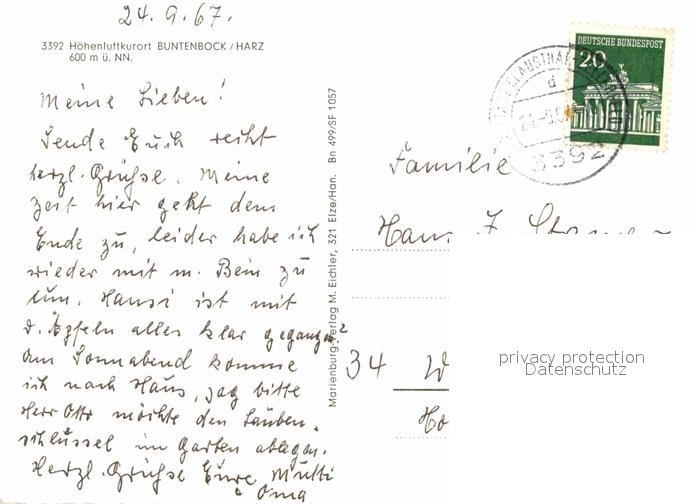 24.9.67.
3392 Höhenluftkurort BUNTENBOCK/HARZ
600 m ü. NN.
Meine Lieben!
Sende Euch recht
herzl. Grüße. Meine
Zeit hier geht dem
Ende zu, leider habe ich
wieder mit m. Bein zu
tun. Hansi ist mit
d. Äpfeln alles klar gegangen?
Am Sonnabend komme
ich nach Haus, sag bitte
Herr Otto möchte den Lauben-
schlüssel im Garten ablegen.
Herzl. Grüße Eure Mutti
Oma
Marienburg-Verlag M. Eichler, 321 Elze/Han. Bn 499/SF 1057
DEUTSCHE BUNDESPOST
20
d
3392
Familie
34
privacy protection
Datenschutz